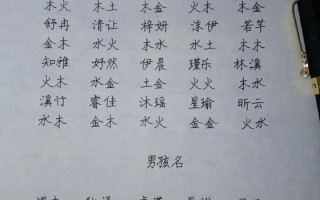 木火 木土 木金 火火 木木
舒冉 清让 梓妍 沐伊 若芊
金木 水火 木水 水土 木木
知雅 妤然 伊晨 瑾乐 林溪
火木 水金 土金 火火 木水
溪竹 睿佳 沐瑶 星瑜 昕云
水木 金木 水火 金金 火水
男孩名